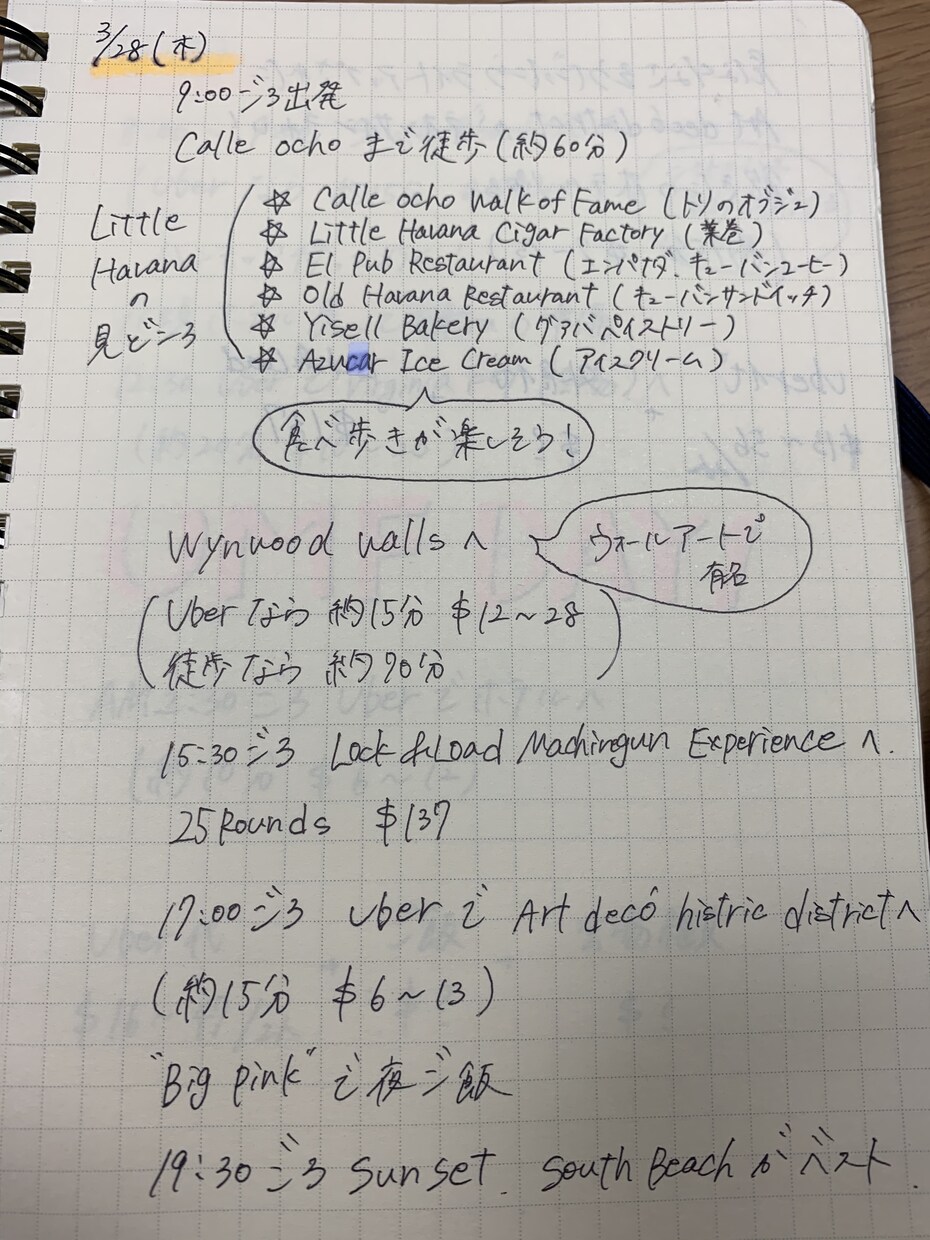 3/28(木)
9:00ごろ出発
Calle ocho まで徒歩(約60分)
Little
Havana
の
見どころ
☆ Calle ocho walk of Fame (トリのオブジェ)
☆ Little Havana Cigar Factory (葉巻)
☆ El Pub Restaurant (エンパナダ、キューバンコーヒー)
☆ Old Havana Restaurant (キューバンサンドイッチ)
☆ Yisell Bakery (グァバペイストリー)
☆ Azucar Ice Cream (アイスクリーム)
食べ歩きが楽しそう!
Wynwood walls へ
ウォールアートで
有名
(Uberなら 約15分 $12~28
徒歩なら 約90分)
15:30ごろ Lock & Load Machinegun Experience へ.
25 Rounds $137
17:00ごろ uberで Art decó histric districtへ
(約15分 $6~13)
"Big pink"で夜ご飯
19:30ごろ sunset. South Beach がベスト.